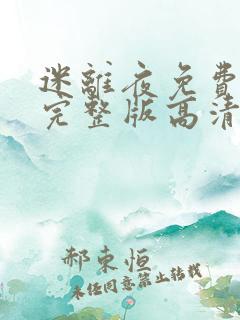 迷離夜免費
完整版高清
郝東恒
未任同意禁止轉載